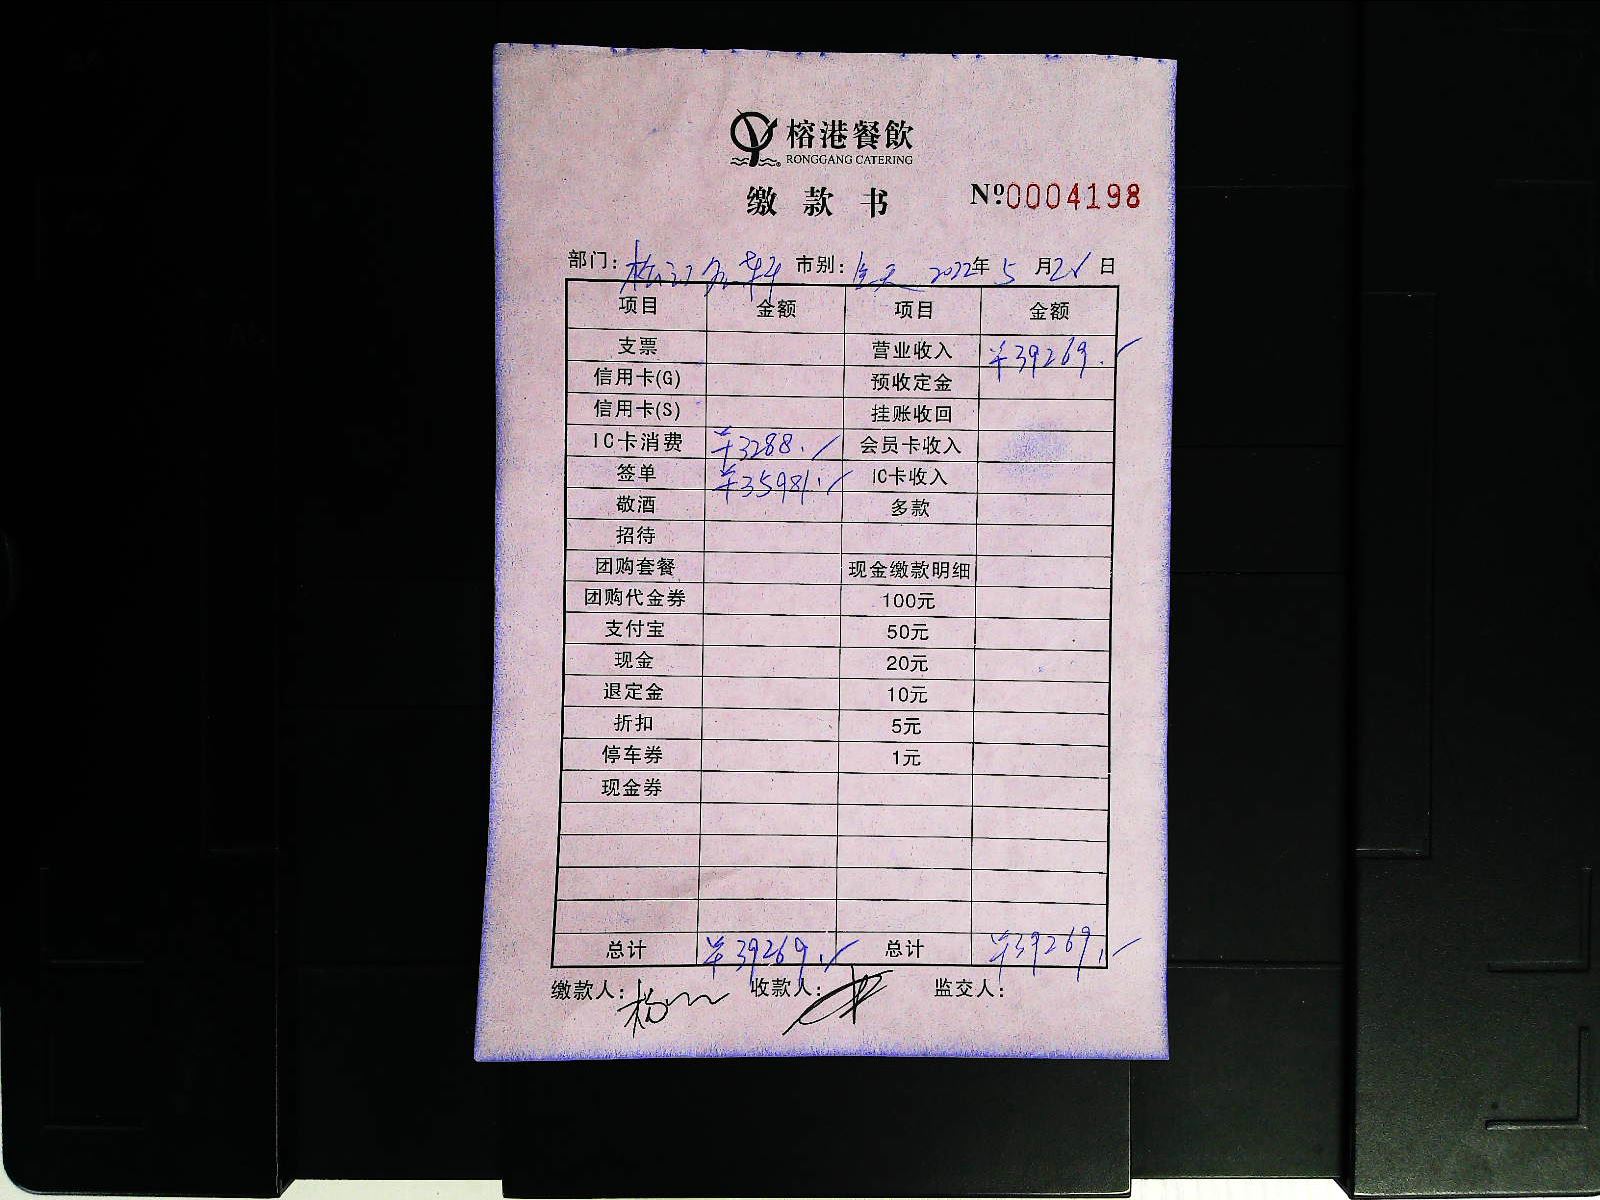 榕港餐飲
RONGGANG CATERING
缴款书 №0004198
部门: 市别: 全天 2022年 5月21日
项目 金额 项目 金额
支票 营业收入 ¥39269.
信用卡(G) 预收定金
信用卡(S) 挂账收回
IC卡消费 ¥3288. 会员卡收入
签单 ¥35981. IC卡收入
敬酒 多款
招待
团购套餐 现金缴款明细
团购代金券 100元
支付宝 50元
现金 20元
退定金 10元
折扣 5元
停车券 1元
现金券
总计 ¥39269. 总计 ¥39269.
缴款人: 收款人: 监交人: